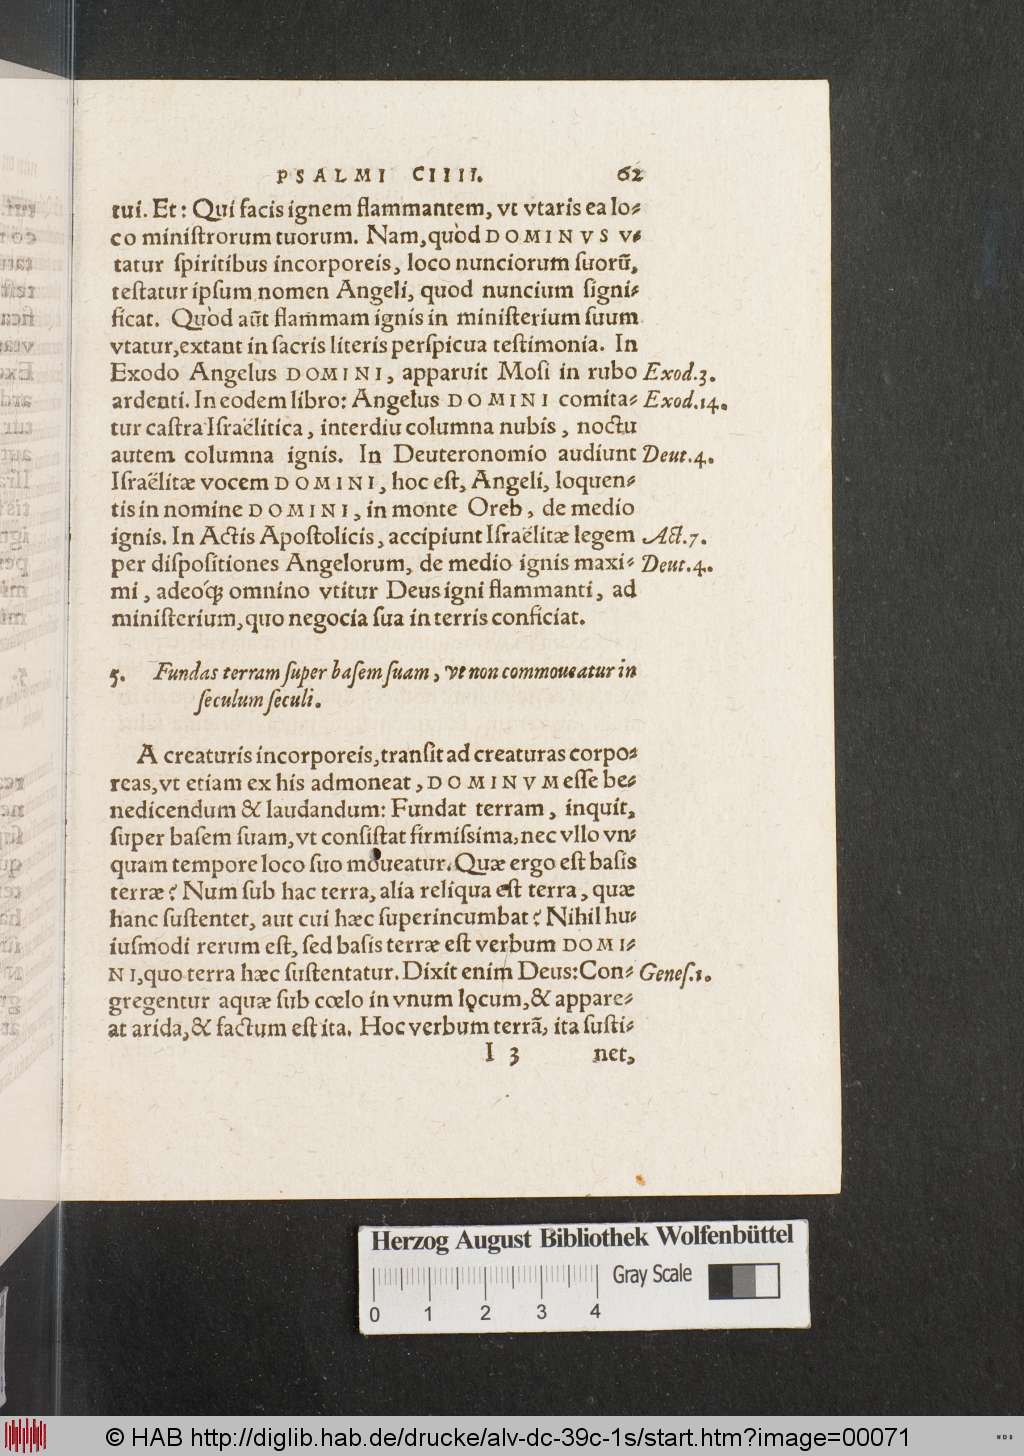 PSALMI CIIII. 62
tui. Et: Qui facis ignem flammantem, vt vtaris ea lo-
co miniſtrorum tuorum. Nam, quòd DOMINVS v-
tatur ſpiritibus incorporeis, loco nunciorum ſuorũ,
teſtatur ipſum nomen Angeli, quod nuncium ſigni-
ficat. Quòd aũt flammam ignis in miniſterium ſuum
vtatur, extant in ſacris literis perſpicua teſtimonia. In
Exodo Angelus DOMINI, apparuit Moſi in rubo Exod.3.
ardenti. In eodem libro: Angelus DOMINI comita- Exod.14.
tur caſtra Iſraëlitica, interdiu columna nubis, noctu
autem columna ignis. In Deuteronomio audiunt Deut.4.
Iſraëlitæ vocem DOMINI, hoc eſt, Angeli, loquen-
tis in nomine DOMINI, in monte Oreb, de medio
ignis. In Actis Apoſtolicis, accipiunt Iſraëlitæ legem Act.7.
per diſpoſitiones Angelorum, de medio ignis maxi- Deut.4.
mi, adeóq́; omnino vtitur Deus igni flammanti, ad
miniſterium, quo negocia ſua in terris conficiat.
5. Fundas terram ſuper baſem ſuam, vt non commoueatur in
ſeculum ſeculi.
A creaturis incorporeis, tranſit ad creaturas corpo-
reas, vt etiam ex his admoneat, DOMINVM eſſe be-
nedicendum & laudandum: Fundat terram, inquit,
ſuper baſem ſuam, vt conſiſtat firmiſsima, nec vllo vn-
quam tempore loco ſuo moueatur. Quæ ergo eſt baſis
terræ? Num ſub hac terra, alia reliqua eſt terra, quæ
hanc ſuſtentet, aut cui hæc ſuperincumbat? Nihil hu-
iuſmodi rerum eſt, ſed baſis terræ eſt verbum DOMI-
NI, quo terra hæc ſuſtentatur. Dixit enim Deus: Con- Geneſ.1.
gregentur aquæ ſub cœlo in vnum lęcum, & appare-
at arida, & factum eſt ita. Hoc verbum terrã, ita ſuſti-
I 3 net,
Herzog August Bibliothek Wolfenbüttel
Gray Scale
0 1 2 3 4
© HAB http://diglib.hab.de/drucke/alv-dc-39c-1s/start.htm?image=00071